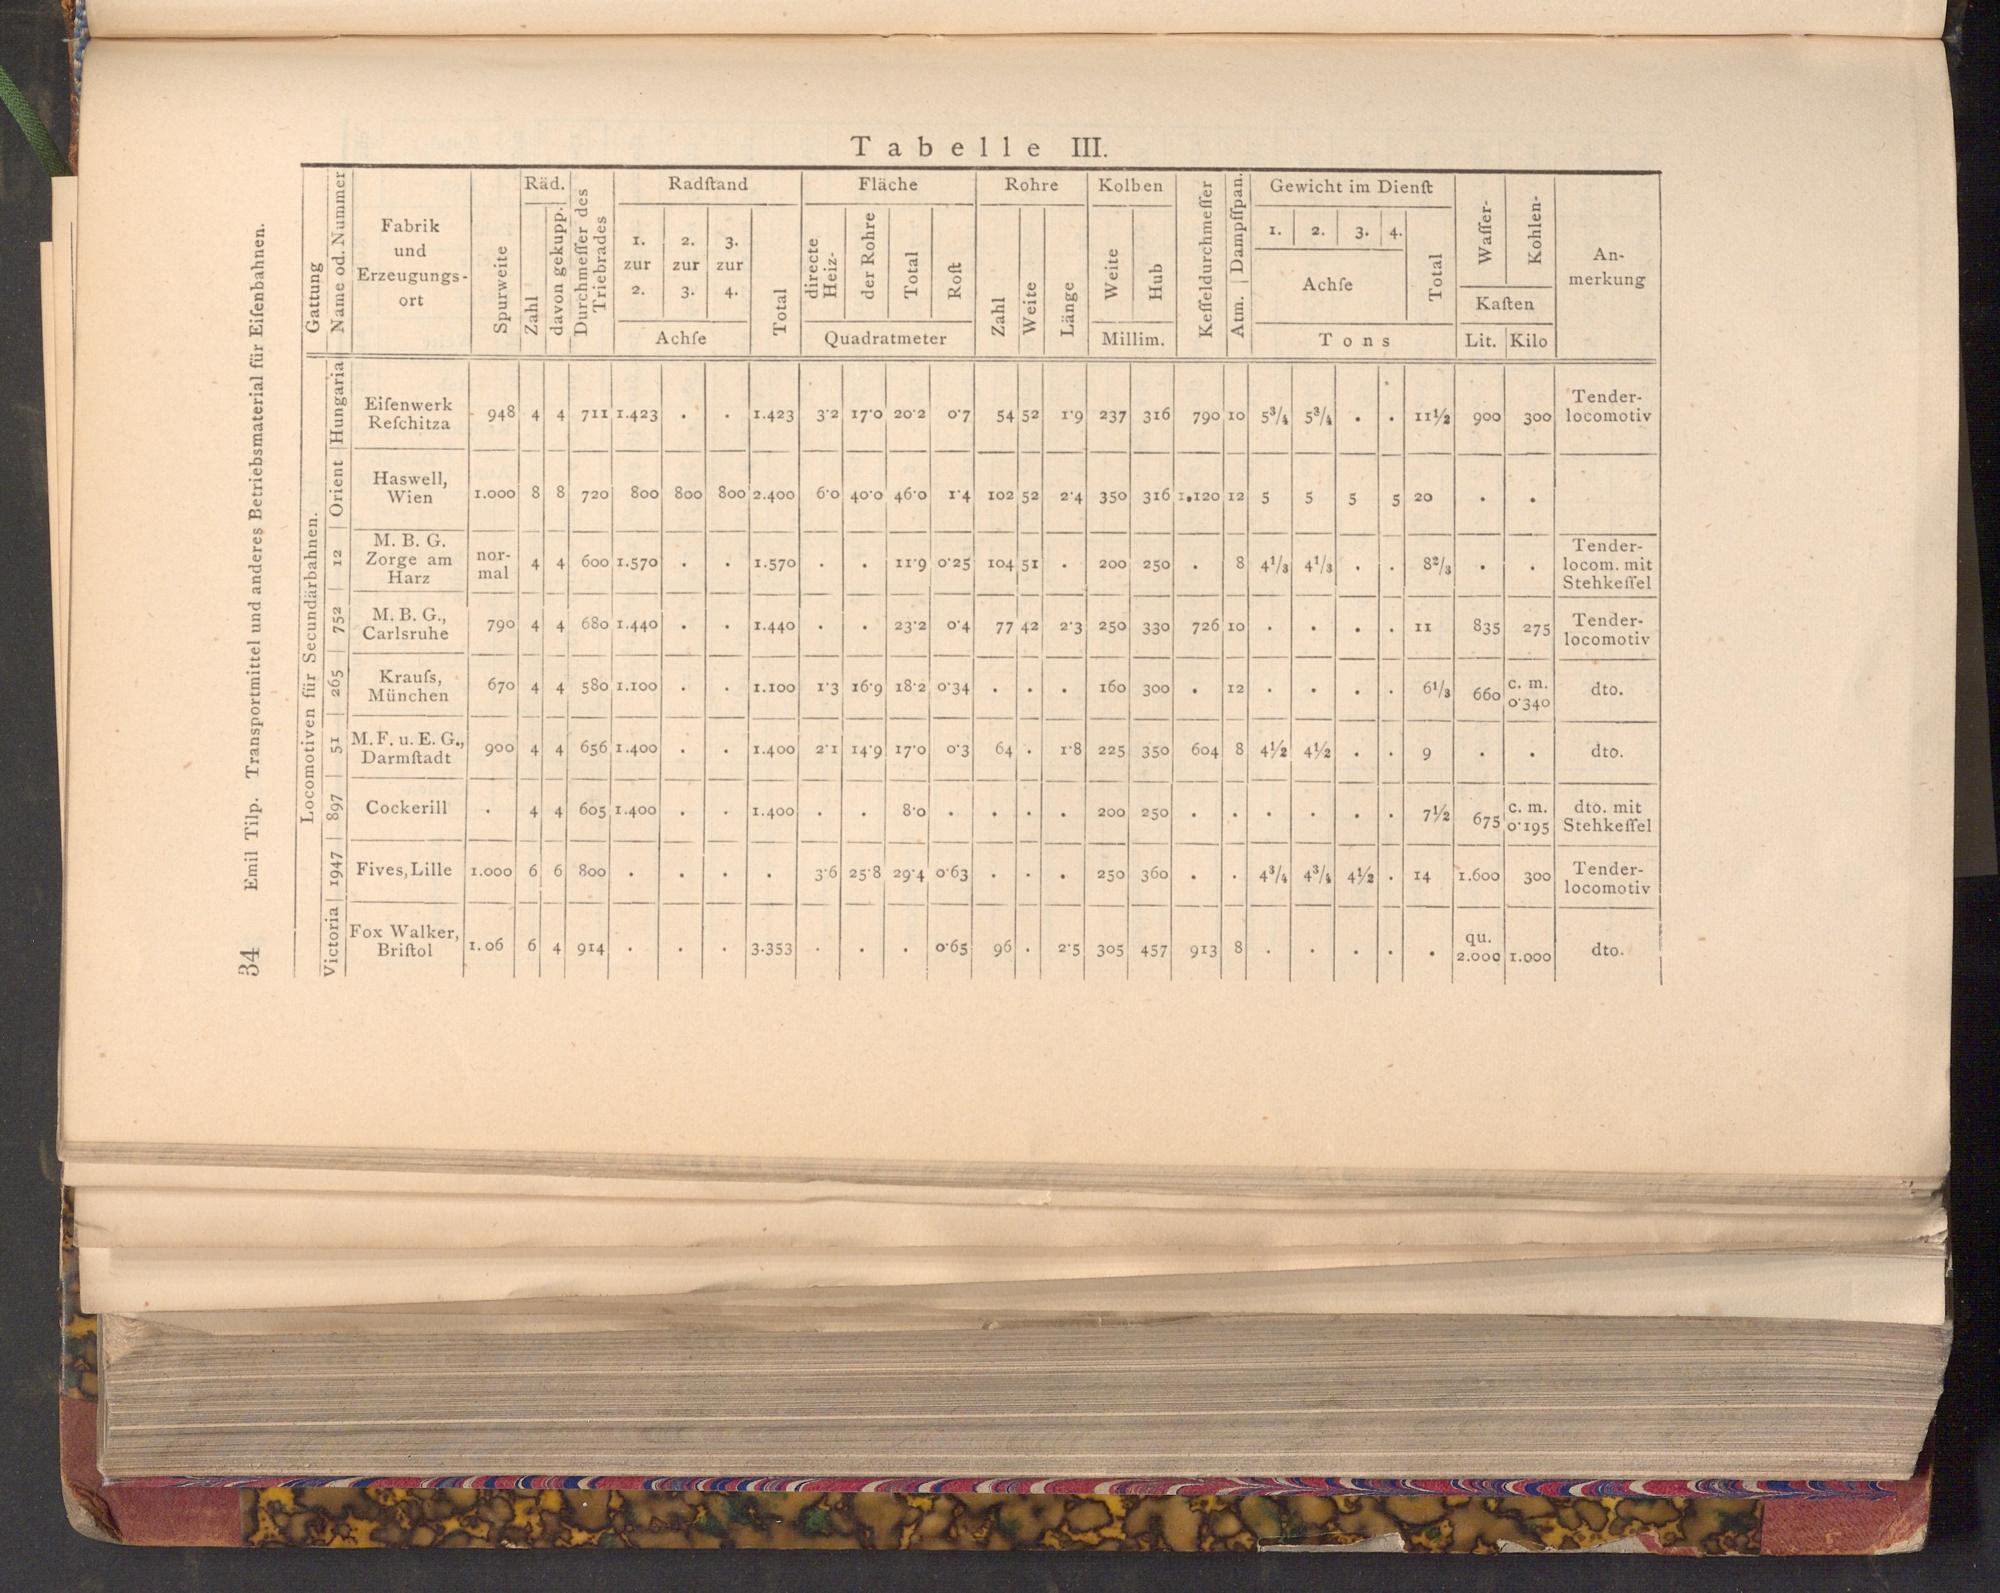 34 Emil Tilp. Transportmittel und anderes Betriebsmaterial für Eiſenbahnen.
Tabelle III.
Gattung
Name od. Nummer
Fabrik
und
Erzeugungs-
ort
Spurweite
Räd.
Zahl
davon gekupp.
Durchmeſſer des
Triebrades
Radſtand
1. zur 2.
2. zur 3.
3. zur 4.
Achſe
Total
Fläche
directe
Heiz-
der Rohre
Total
Roſt
Quadratmeter
Rohre
Zahl
Weite
Länge
Kolben
Weite
Hub
Millim.
Keſſeldurchmeſſer
Atm. Dampfſpan.
Gewicht im Dienſt
1. 2. 3. 4.
Achſe
Total
Tons
Waſſer-
Kohlen-
Kaſten
Lit. Kilo
An-
merkung
Locomotiven für Secundärbahnen.
Hungaria Eiſenwerk Reſchitza 948 4 4 711 1.423 . . 1.423 3·2 17·0 20·2 0·7 54 52 1·9 237 316 790 10 5¾ 5¾ . . 11½ 900 300 Tender-locomotiv
Orient Haswell, Wien 1.000 8 8 720 800 800 800 2.400 6·0 40·0 46·0 1·4 102 52 2·4 350 316 1.120 12 5 5 5 5 20 . .
12 M. B. G. Zorge am Harz nor-mal 4 4 600 1.570 . . 1.570 . . 11·9 0·25 104 51 . 200 250 . 8 4⅓ 4⅓ . . 8⅔ . . Tender-locom. mit Stehkeſſel
752 M. B. G., Carlsruhe 790 4 4 680 1.440 . . 1.440 . . 23·2 0·4 77 42 2·3 250 330 726 10 . . . . 11 835 275 Tender-locomotiv
265 Kraufs, München 670 4 4 580 1.100 . . 1.100 1·3 16·9 18·2 0·34 . . . 160 300 . 12 . . . . 6⅓ 660 c. m. 0·340 dto.
51 M. F. u. E. G., Darmſtadt 900 4 4 656 1.400 . . 1.400 2·1 14·9 17·0 0·3 64 . 1·8 225 350 604 8 4½ 4½ . . 9 . . dto.
897 Cockerill . 4 4 605 1.400 . . 1.400 . . 8·0 . . . . 200 250 . . . . . . 7½ 675 c. m. 0·195 dto. mit Stehkeſſel
1947 Fives, Lille 1.000 6 6 800 . . . . 3·6 25·8 29·4 0·63 . . . 250 360 . . 4¾ 4¾ 4½ . 14 1.600 300 Tender-locomotiv
Victoria Fox Walker, Briſtol 1.06 6 4 914 . . . 3.353 . . . 0·65 96 . 2·5 305 457 913 8 . . . . . qu. 2.000 1.000 dto.